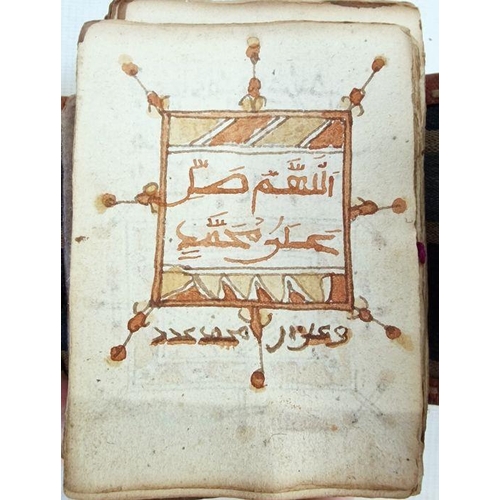 اللهم صل
على محمد
وعلى ال محمد عدد